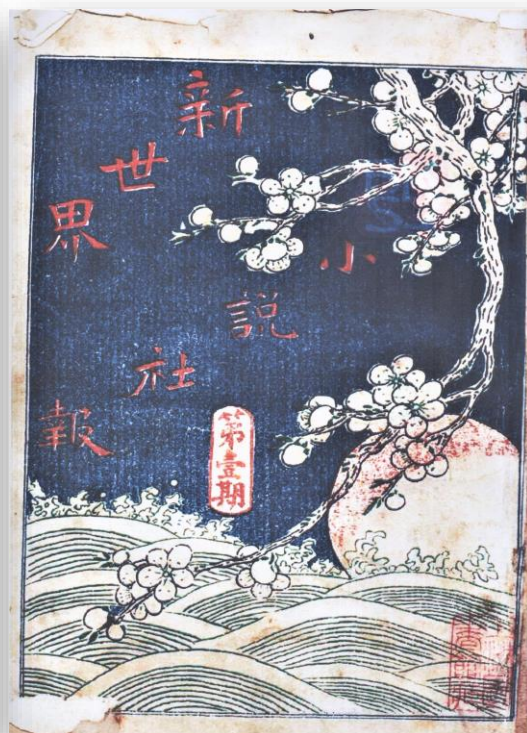 新世界
小説社報
第壹期